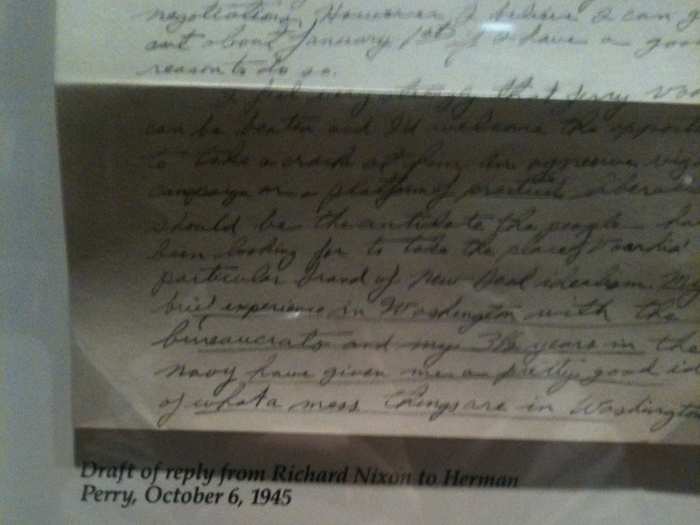 negotiations. However, I believe I can g
out about January 1st if I have a goo
reason to do so.
I feel very strongly that Jerry Voo
can be beaten and I'd welcome the opport
to take a crack at him. An aggressive, vig
campaign on a platform of practical liberal
should be the antidote the people ha
been looking for to take the place of Voorhis'
particular brand of New Deal idealism. My
brief experience in Washington with the
bureaucrats and my 3½ years in the
navy have given me a pretty good id
of what a mess things are in Washington
Draft of reply from Richard Nixon to Herman
Perry, October 6, 1945